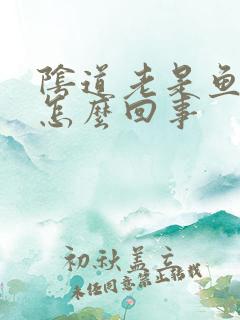 陰道老是鱼
怎麼回事
初秋盖立
未经同意禁止转载